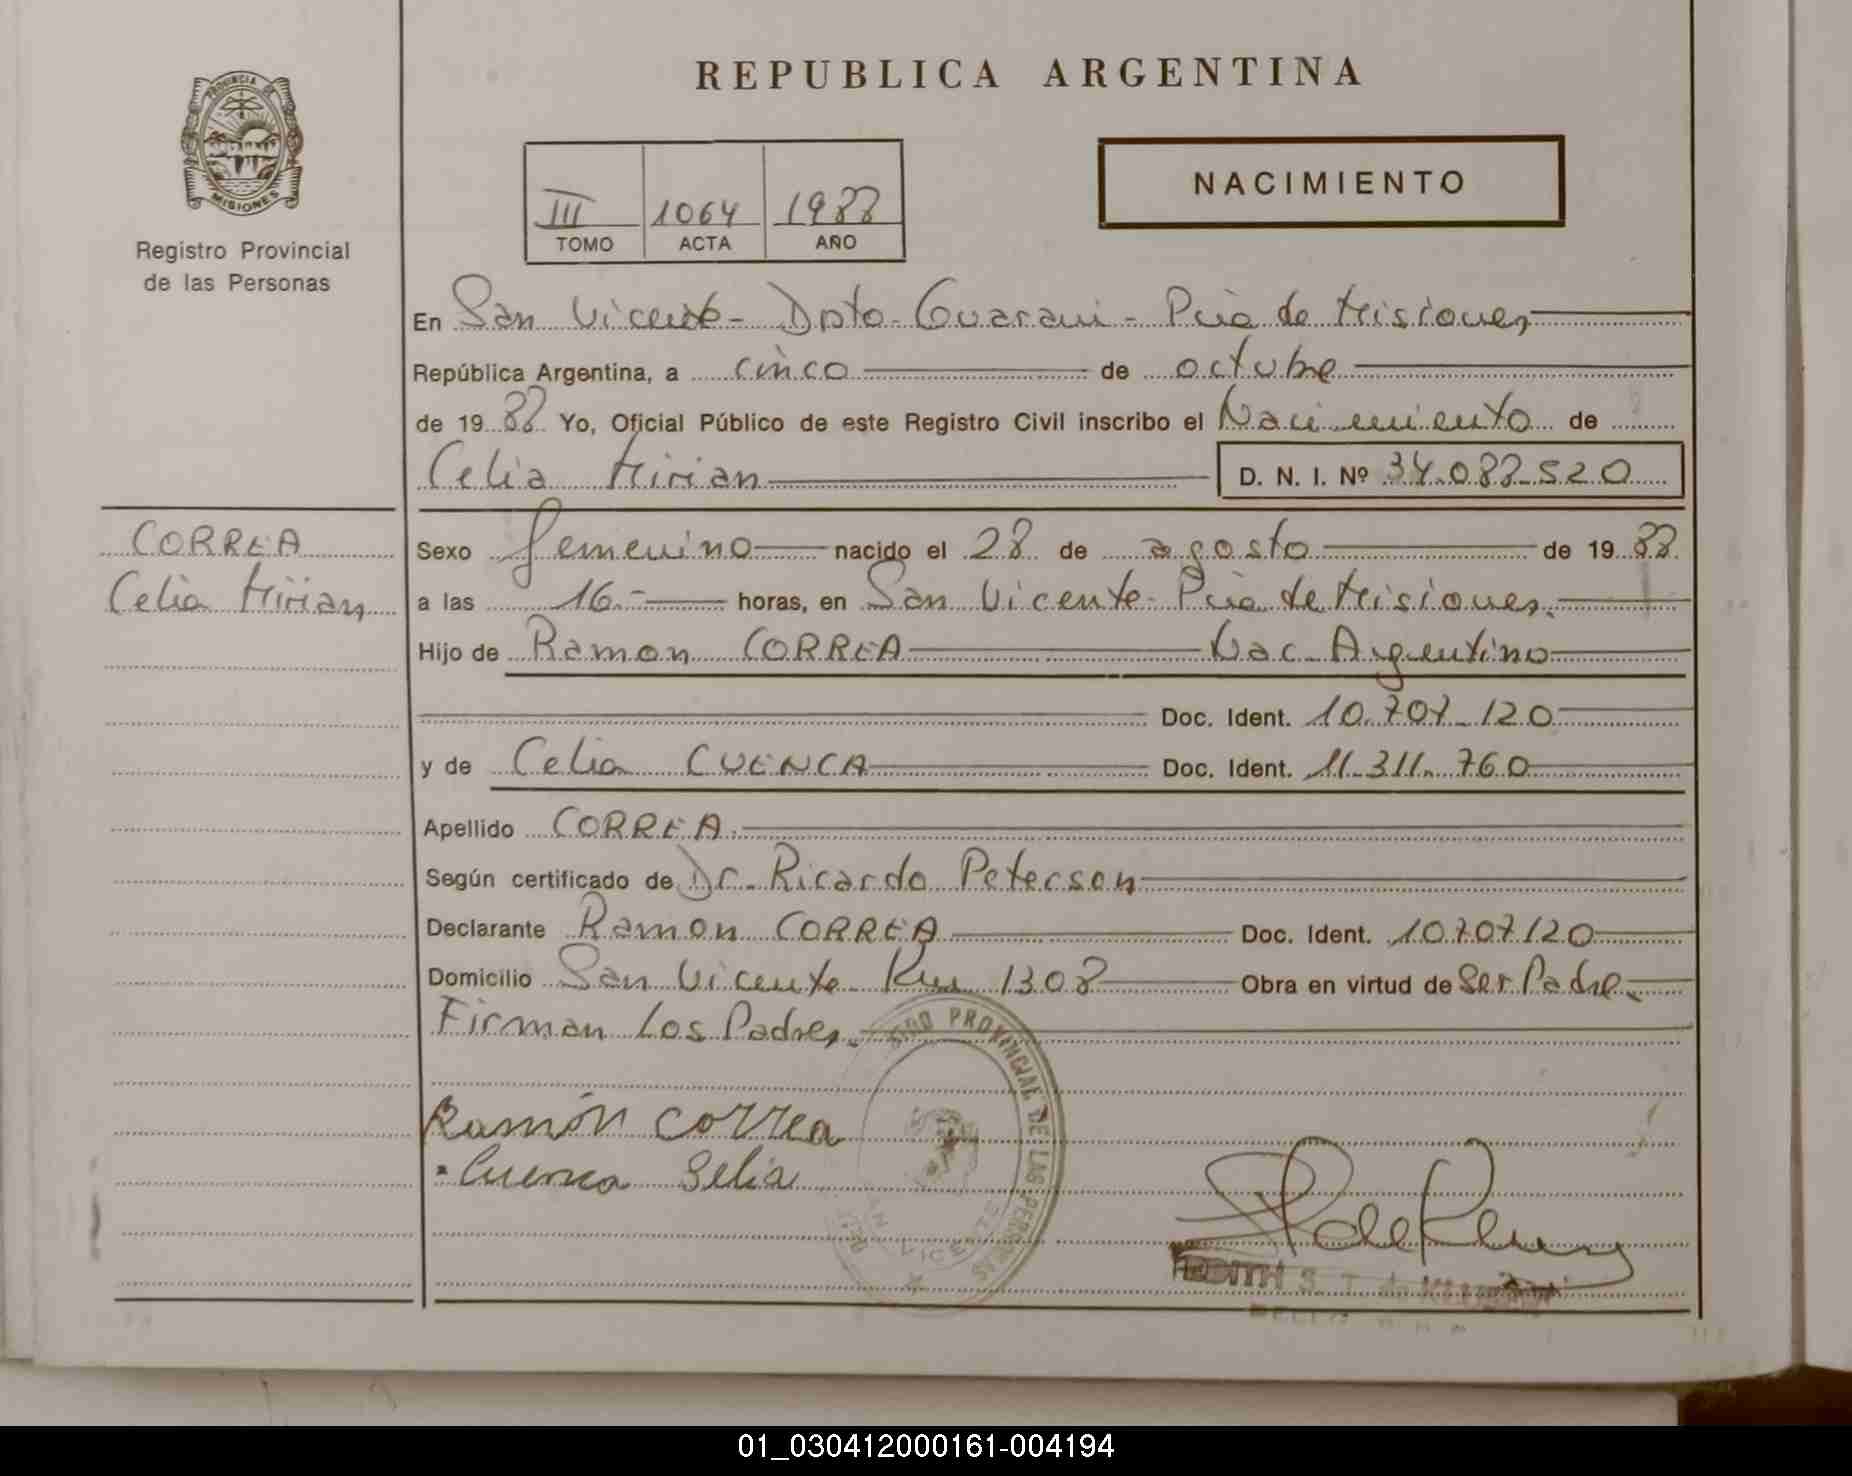 PROVINCIA DE
MISIONES
Registro Provincial
de las Personas
REPUBLICA ARGENTINA
III 1064 1988
TOMO ACTA AÑO
NACIMIENTO
En San Vicente - Dpto. Guarani - Pcia de Misiones
República Argentina, a cinco de octubre
de 1988 Yo, Oficial Público de este Registro Civil inscribo el Nacimiento de
Celia Mirian D. N. I. Nº 34.088.520
CORREA
Celia Mirian
Sexo femenino nacido el 28 de agosto de 1988
a las 16.- horas, en San Vicente - Pcia de Misiones.
Hijo de Ramon CORREA Nac. Argentino
Doc. Ident. 10.707.120
y de Celia CUENCA Doc. Ident. 11.311.760
Apellido CORREA.
Según certificado de Dr. Ricardo Peterson
Declarante Ramon CORREA Doc. Ident. 10.707.120
Domicilio San Vicente Km 1308 Obra en virtud de Ser Padre.
Firman Los Padres.
Ramón Correa
Cuenca Selia
PROVINCIAL DE LAS PERSONAS
VICENTE
EDITH S. T. de
01_030412000161-004194